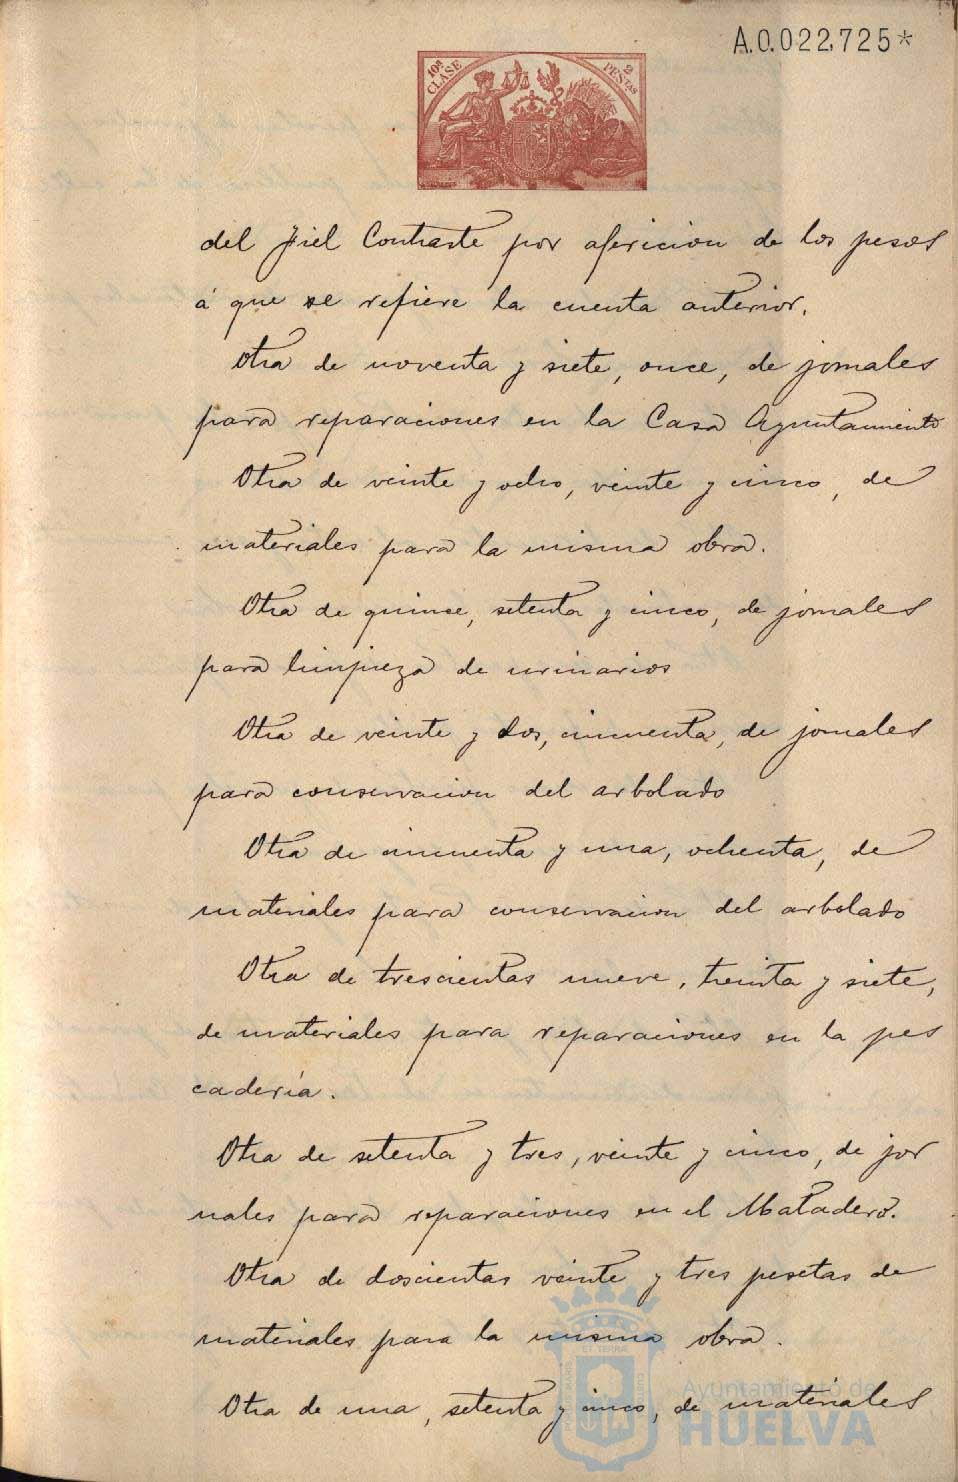 A.0.022,725*
10ª CLASE
2 PESETAS
del Fiel Contraste por afericion de los pesos
á que se refiere la cuenta anterior.
Otra de noventa y siete, once, de jornales
para reparaciones en la Casa Ayuntamiento
Otra de veinte y ocho, veinte y cinco, de
materiales para la misma obra.
Otra de quince, setenta y cinco, de jornales
para limpieza de urinarios
Otra de veinte y dos, cincuenta, de jornales
para conservacion del arbolado
Otra de cincuenta y una, ochenta, de
materiales para conservacion del arbolado
Otra de trescientas nueve, treinta y siete,
de materiales para reparaciones en la pes
cadería.
Otra de setenta y tres, veinte y cinco, de jor
nales para reparaciones en el Matadero.
Otra de doscientas veinte y tres pesetas de
materiales para la misma obra.
Otra de una, setenta y cinco, de materiales
Ayuntamiento de
HUELVA